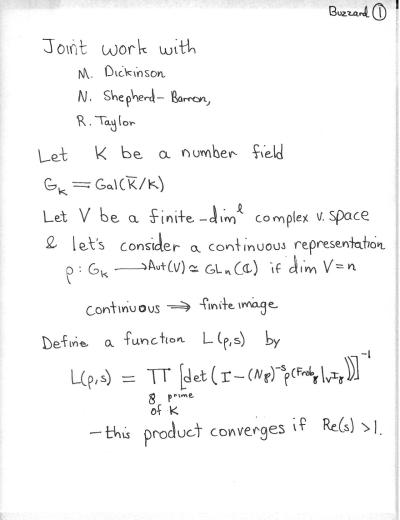 Buzzard ①
Joint work with
M. Dickinson
N. Shepherd-Barron,
R. Taylor
Let K be a number field
G_K = Gal(K̅/K)
Let V be a finite-dim^l complex v. space
& let's consider a continuous representation
ρ : G_K ⟶ Aut(V) ≃ GL_n(ℂ) if dim V = n
continuous ⇒ finite image
Define a function L(ρ,s) by
L(ρ,s) = ∏ [det(I-(N℘)^{-s}ρ(Frob_℘|V^{I_℘}))]^{-1}
℘ prime
of K
- this product converges if Re(s) > 1.